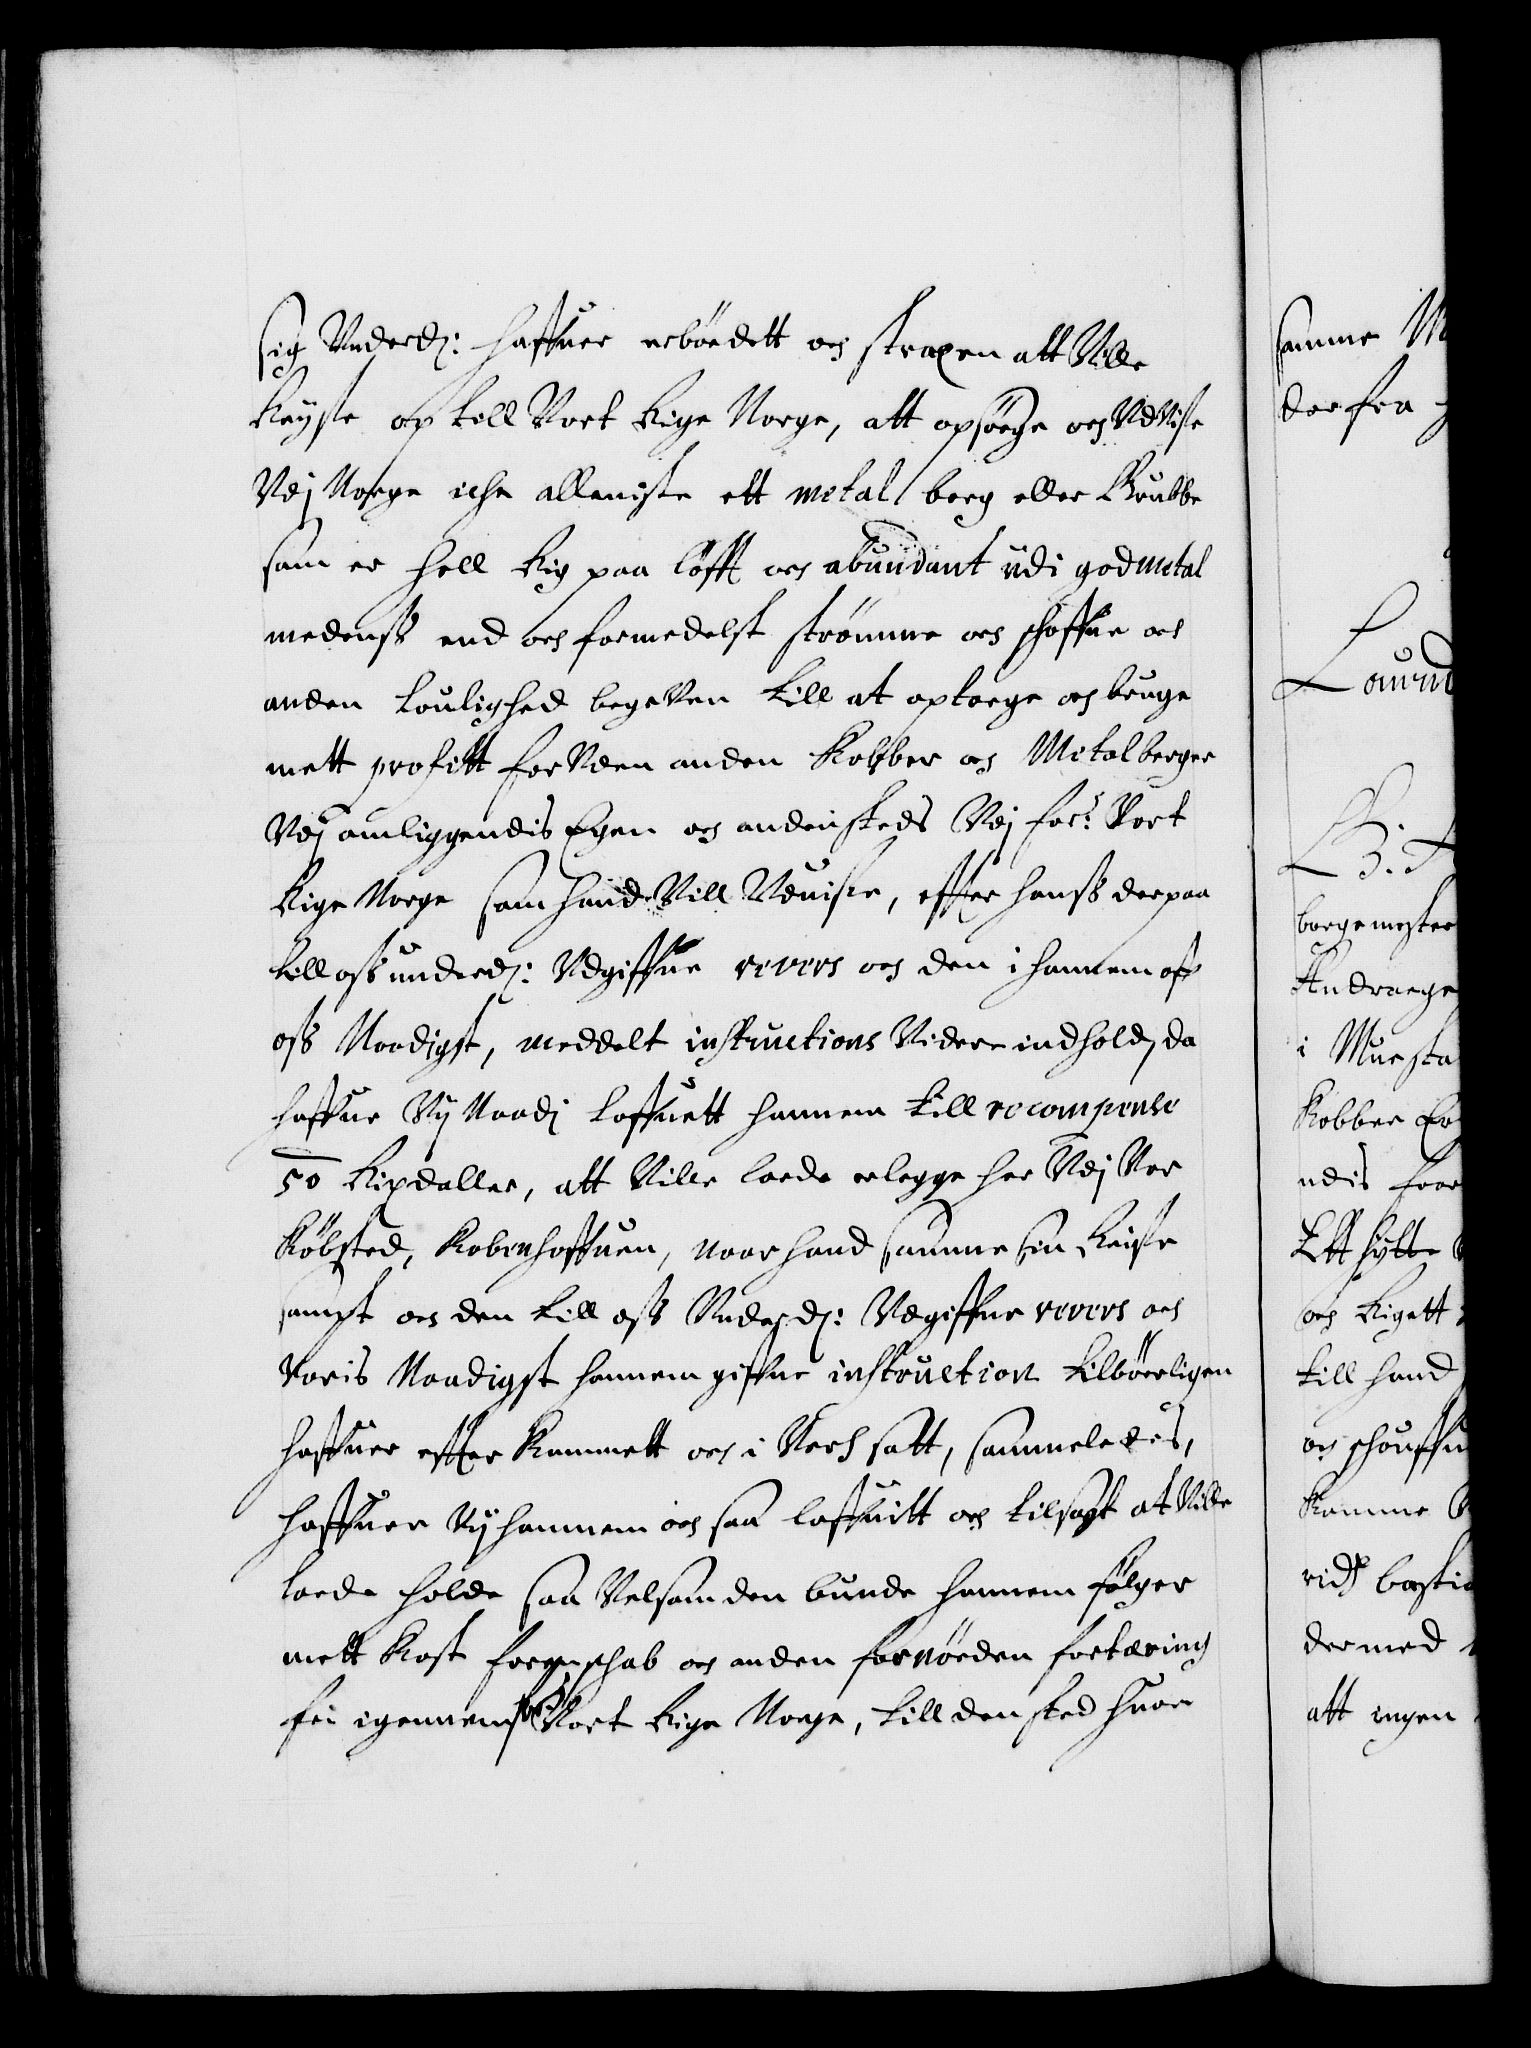 sig Underd: haffuer erbödett och straxen att Ville
Reyse op till Vort Rige Norge, att opsöge och Udvise
Udj Norge iche alleniste ett metal berg eller Grubbe
som er hell Rig paa löfft och abundant udi god metal
medenss end och formedelst strömme och schoffue och
anden Leylighed begeVen till at optage och bruge
mett profitt for Uden anden Kobber och Metalberger
Udj omliggendis Egen och andensteds Udj for: Vort
Rige Norge som hand Vill Udvise, effter hanss derpaa
till oss underd: Udgiffne revers och den i hannem aff
oss Naadigst, meddelt instructions Videre indhold, da
haffue Vij Naadj loffuett hannem till recompense
50 Rixdaller, att Ville lade erlegge her Udj Vor
Köbsted, Kobenhaffuen, naar hand samme sin Reise
sampt och den till oss Underd: Udgiffne revers och
Voris Naadigst hannem giffne instruction tilbörligen
haffuer effter kommett och i Verch satt, sammeledis,
haffuer Vij hannem och saa loffuitt och tilsagt at Ville
lade holde saa Vel som den bunde hannem fölger
mett Kost forgenschab och anden fornöden fortæring
fri igennem Vort Rige Norge, till den sted huor
samme
der fra
Laurid
G: A
borgemester
Andraege
i Muesta
Kobber Er
ndis
Ett hytte
och Rigett
till hand
och schouffu
Komme
vid bostia
dermed
att ingen